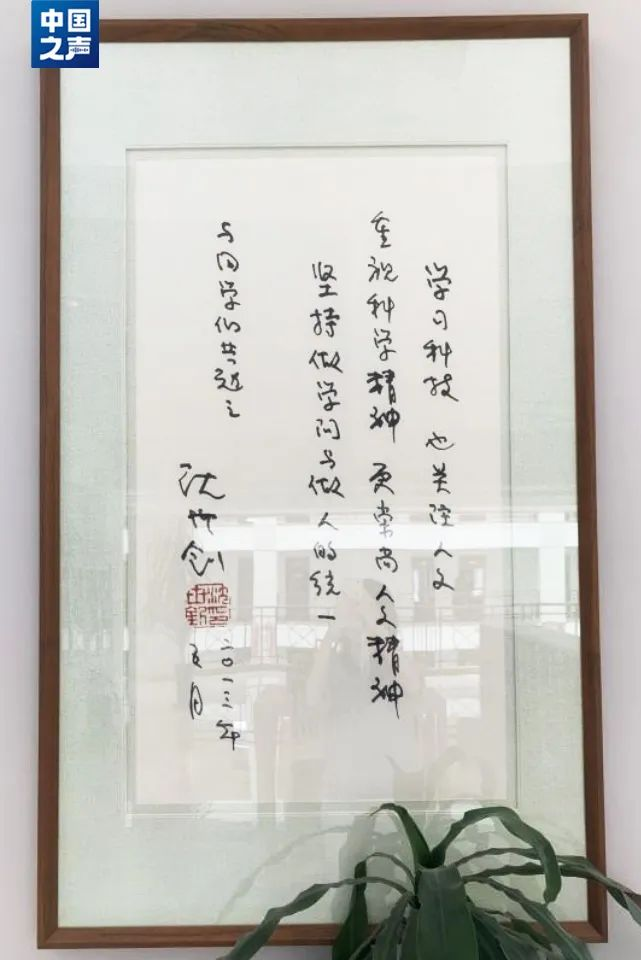 中国之声
学习科技 也关注人文
重视科学精神 更崇尚人文精神
坚持做学问与做人的统一
与同学们共勉之
沈世钊
二〇一三年
五月